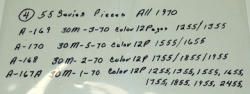 ④ 55 Series Pieces All 1970
A-169 30M-3-70 Color 12 Pages 1255/1355
A-170 30M-5-70 Color 12P 1555/1655
A-168 30M-2-70 Color 12P 1755/1855/1955
A-167A 30M-1-70 Color 12P 1255, 1355, 1555, 1655,
1755, 1855, 1955, 2455